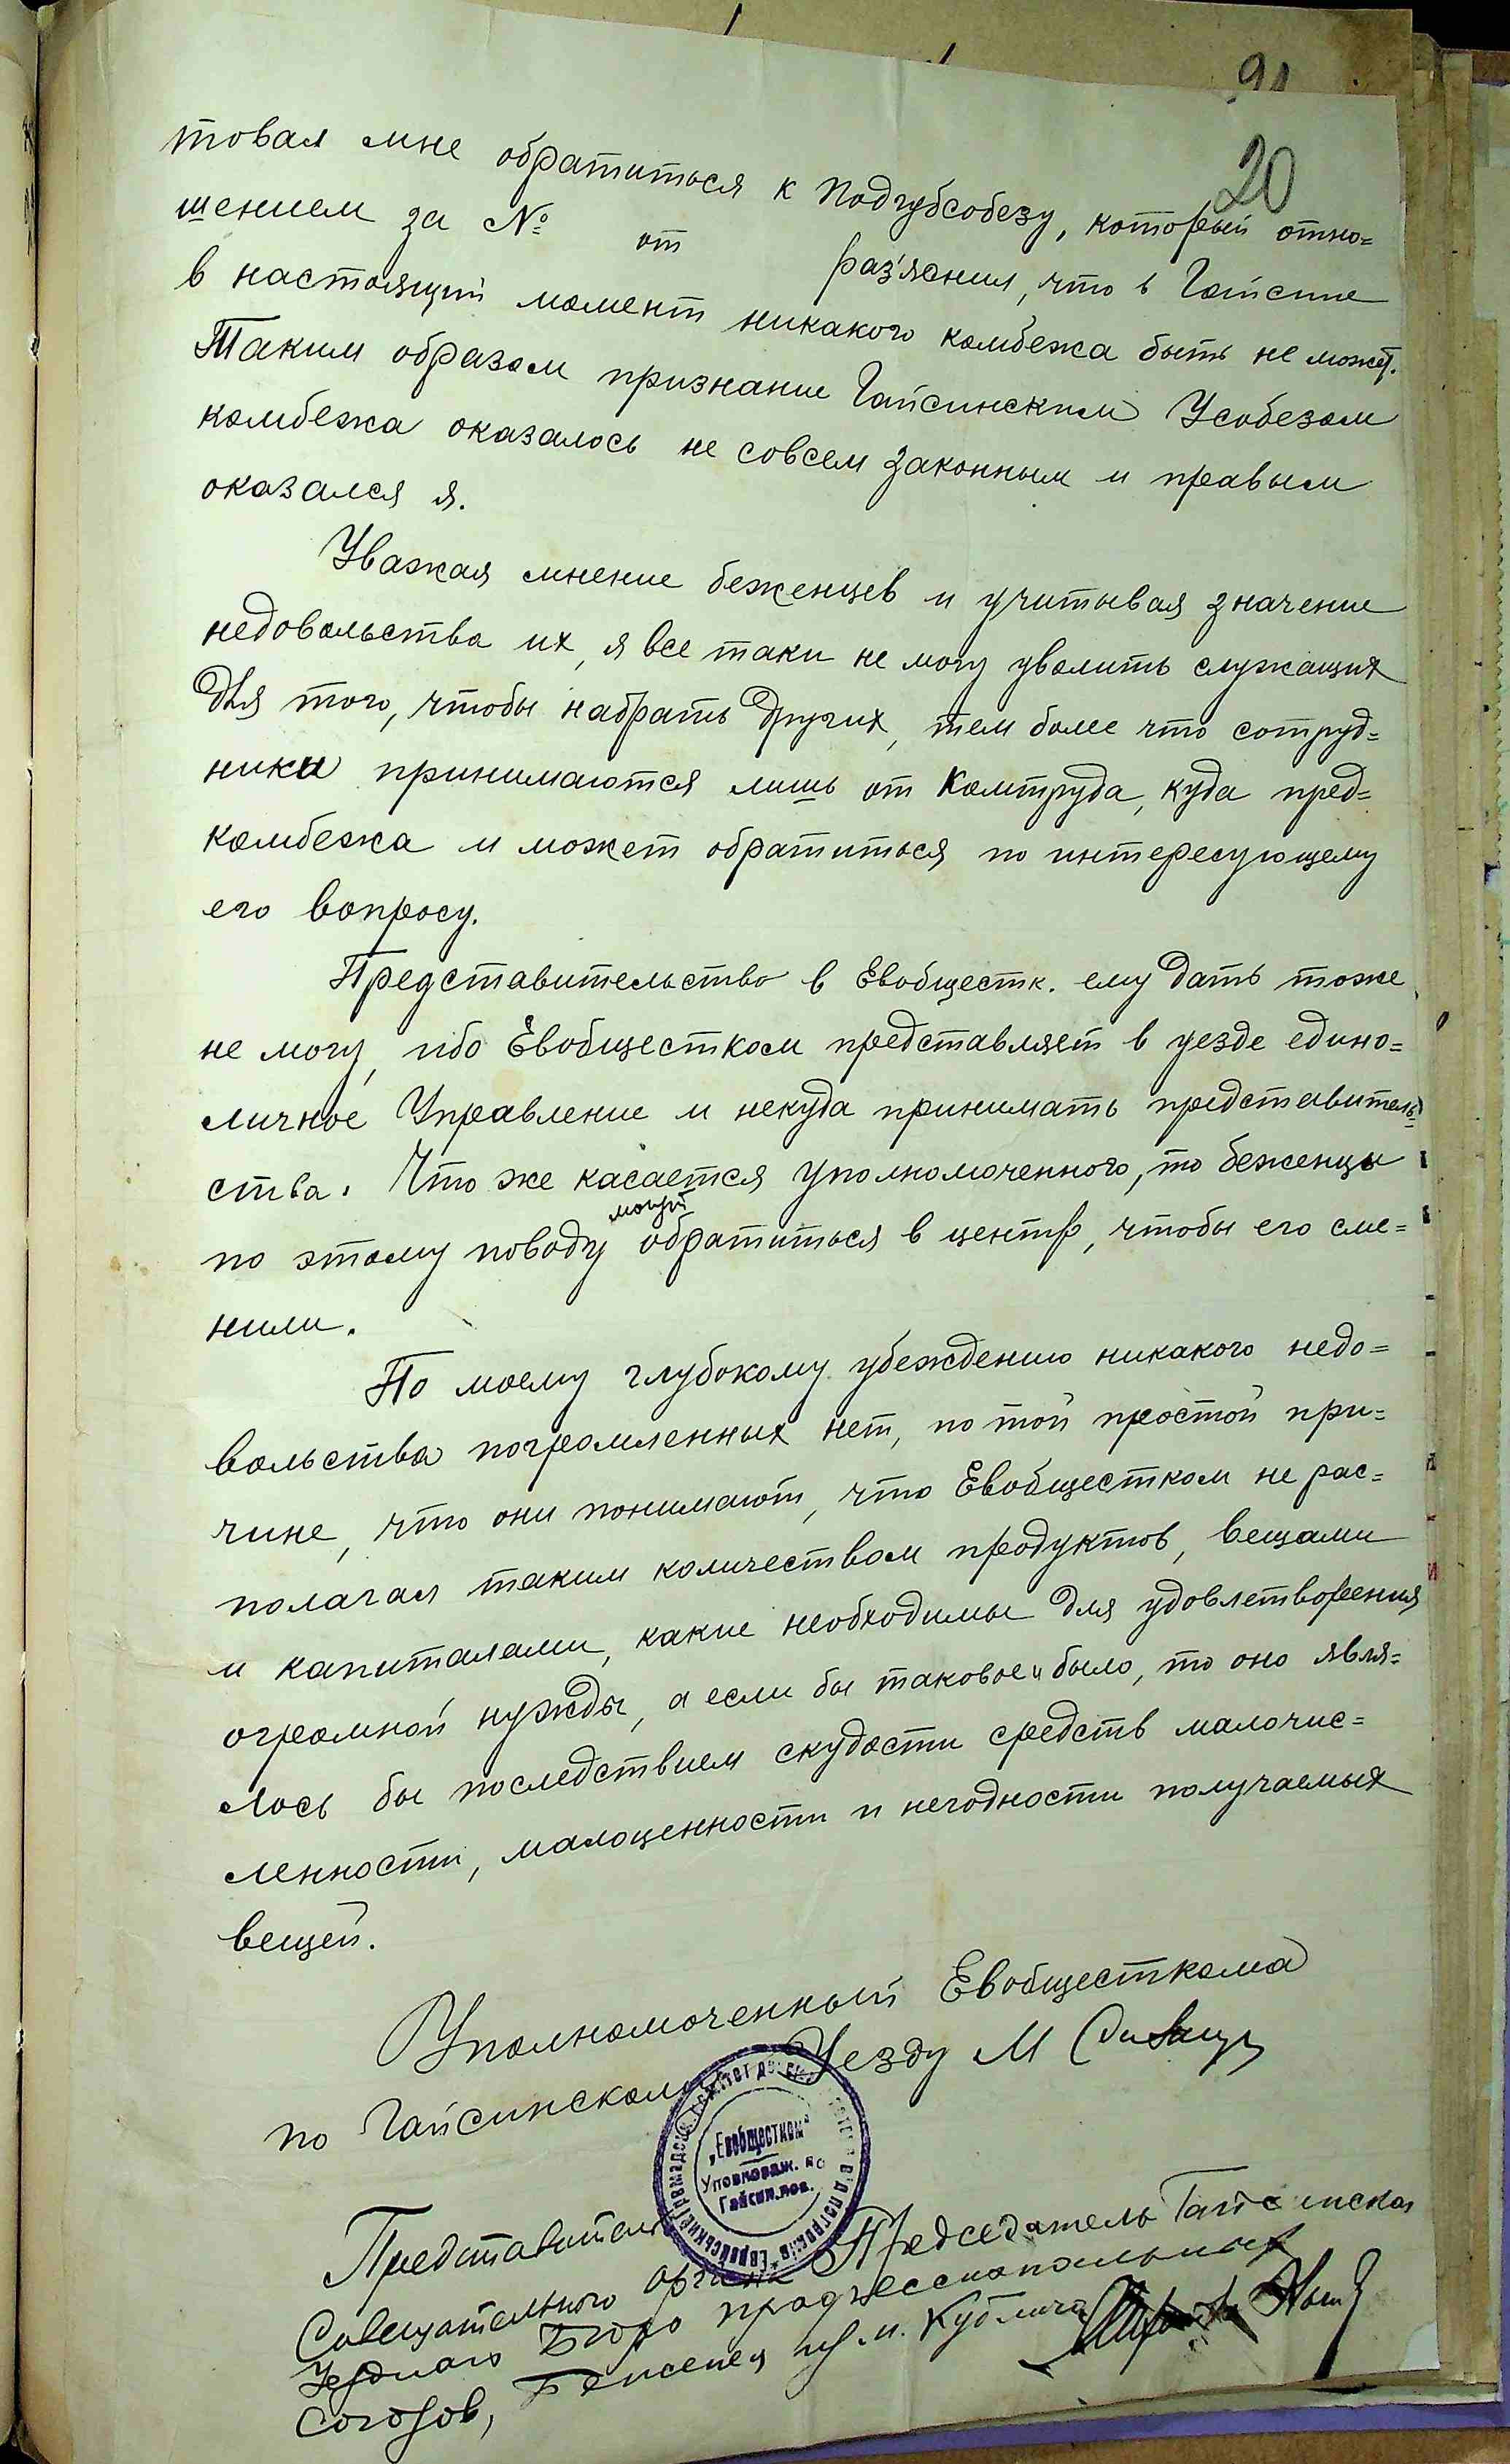 91
20
товал мне обратиться к Подгубсобезу, который отно=
шением за № от раз'яснил, что в Гайсине
в настоящий момент никакого комбежа быть не может.
Таким образом признание Гайсинским Усобезом
комбежа оказалось не совсем законным и правым
оказался я.
Уважая мнение беженцев и учитывая значение
недовольства их, я все таки не могу уволить служащих
для того, чтобы набрать других, тем более что сотруд=
ники принимаются лишь от Комтруда, куда пред=
комбежа и может обратиться по интересующему
его вопросу.
Представительство в Евобщестк. ему дать тоже
не могу, ибо Евобщестком представляет в уезде едино=
личное Управление и некуда принимать представитель=
ства. Что же касается Уполномоченного, то беженцы
могут
по этому поводу обратиться в центр, чтобы его сме=
нили.
По моему глубокому убеждению никакого недо=
вольства погромленных нет, по той простой при=
чине, что они понимают, что Евобщестком не рас=
полагал таким количеством продуктов, вещами
и капиталами, какие необходимы для удовлетворения
огромной нужды, а если бы таковое и было, то оно явля=
лось бы последствием скудости средств малочис=
ленности, малоценности и негодности получаемых
вещей.
Уполномоченный Евобщесткома
по Гайсинскому Уезду М
„Евобщестком"
Уповноваж. по
Гайсин. пов.
Представитель
Совещательного органа Председатель Гайсинског
Уездного Бюро профессиональных
Союзов, Беженец из м. Кублича